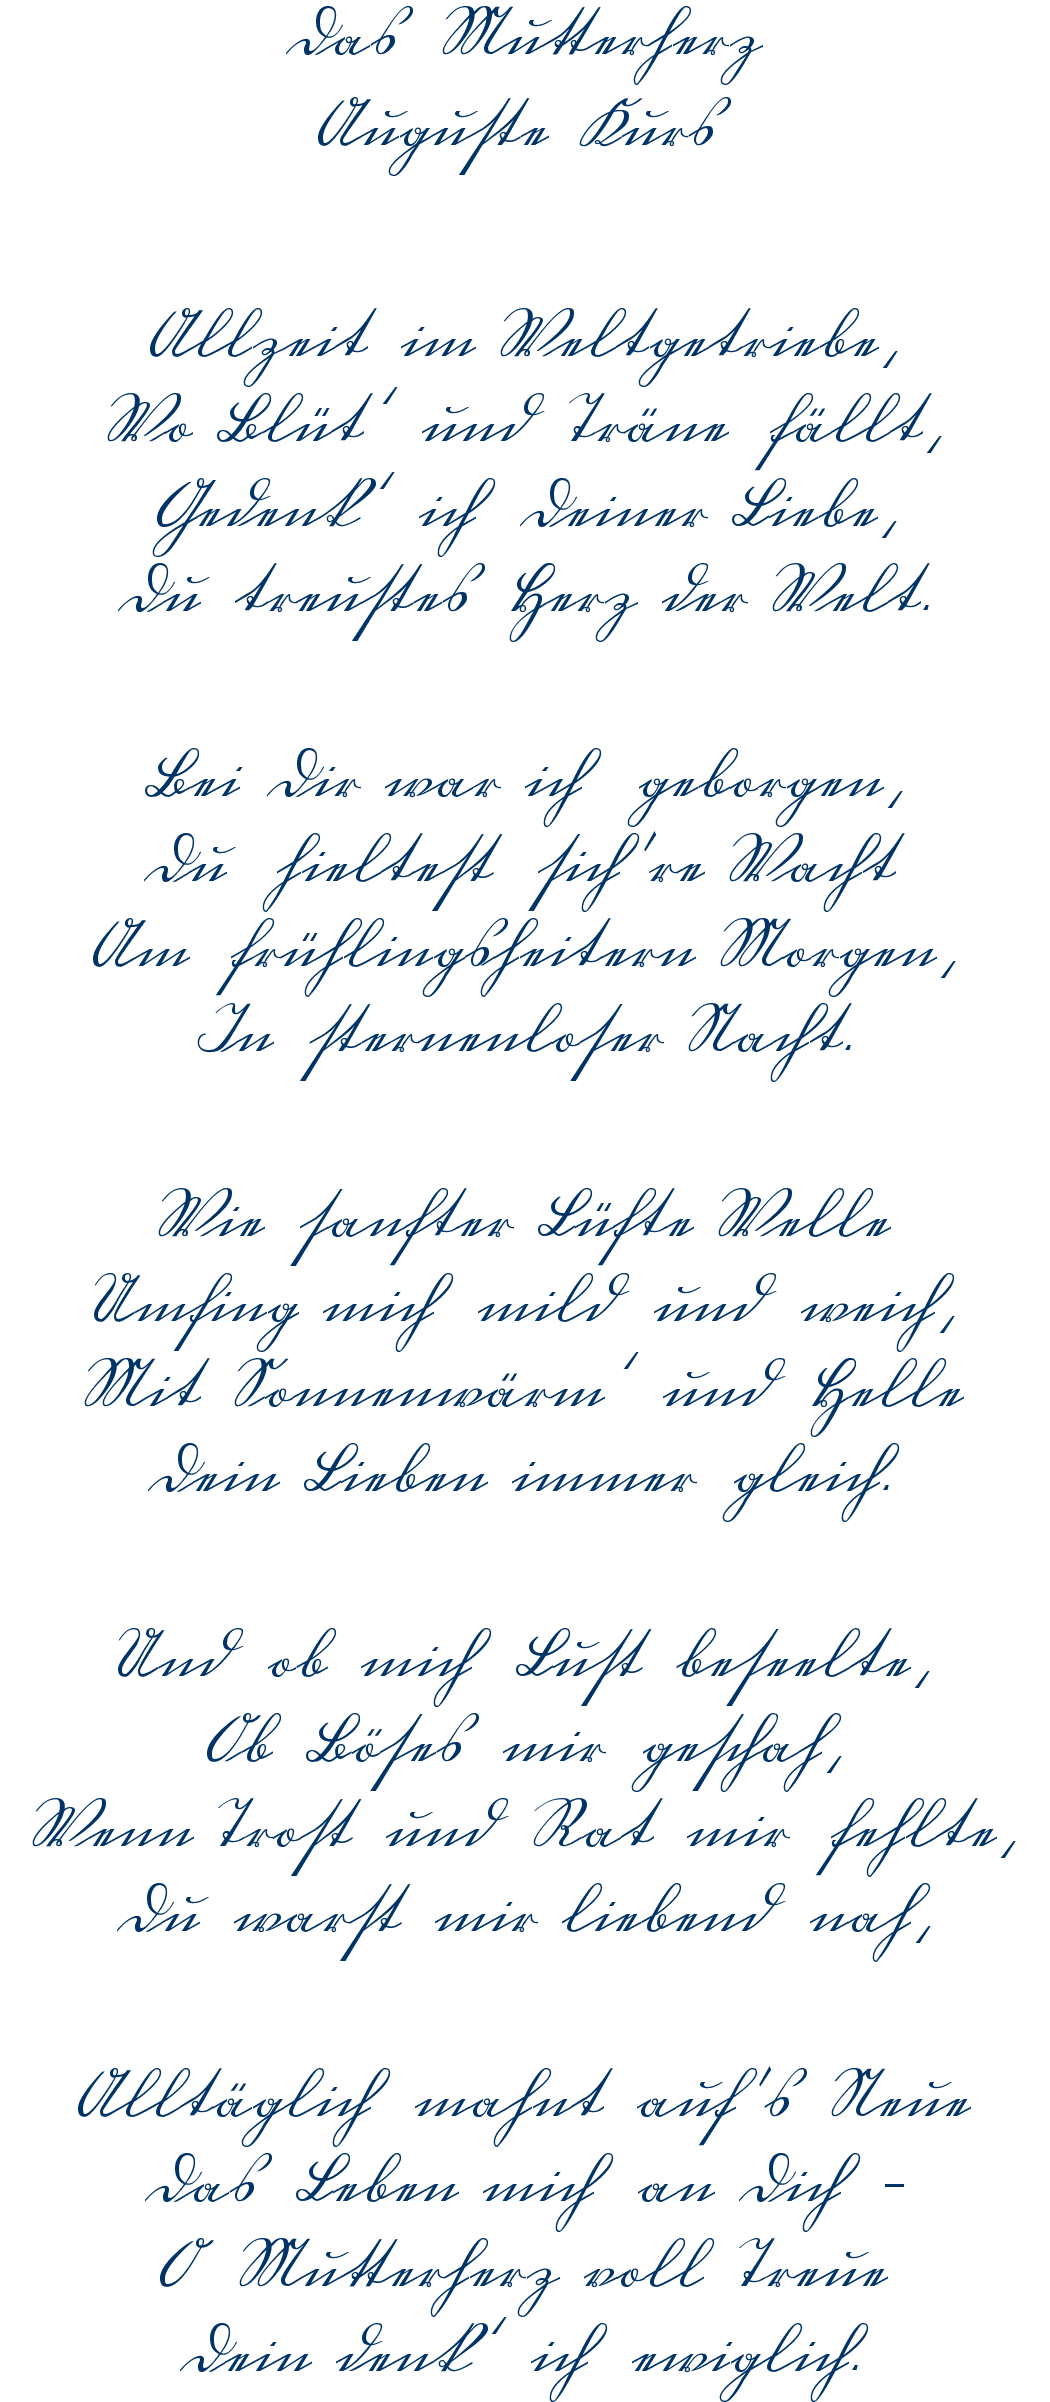 Das Mutterherz
Auguste Kurs
Allzeit im Weltgetriebe,
Wo Blüt' und Träne fällt,
Gedenk' ich Deiner Liebe,
Du treustes Herz der Welt.
Bei Dir war ich geborgen,
Du hieltest sich're Wacht
Am frühlingsheitern Morgen,
In sternenloser Nacht.
Wie sanfter Lüfte Welle
Umfing mich mild und weich,
Mit Sonnenwärm' und Helle
Dein Lieben immer gleich.
Und ob mich Lust beseelte,
Ob Böses mir geschah,
Wenn Trost und Rat mir fehlte,
Du warst mir liebend nah,
Alltäglich mahnt auf's Neue
Das Leben mich an Dich -
O Mutterherz voll Treue
Dein denk' ich ewiglich.